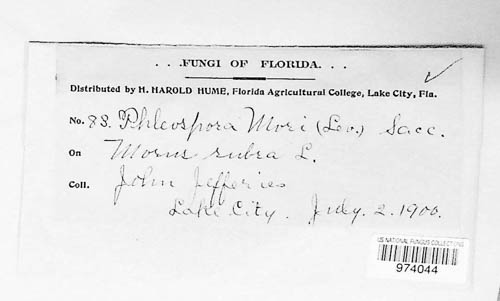 . . .FUNGI OF FLORIDA. . .
Distributed by H. HAROLD HUME, Florida Agricultural College, Lake City, Fla.
No. 88. Phleospora Mori (Lev.) Sacc.
On Morus rubra L.
Coll. John Jefferies
Lake City. July. 2. 1900.
US NATIONAL FUNGUS COLLECTIONS
974044